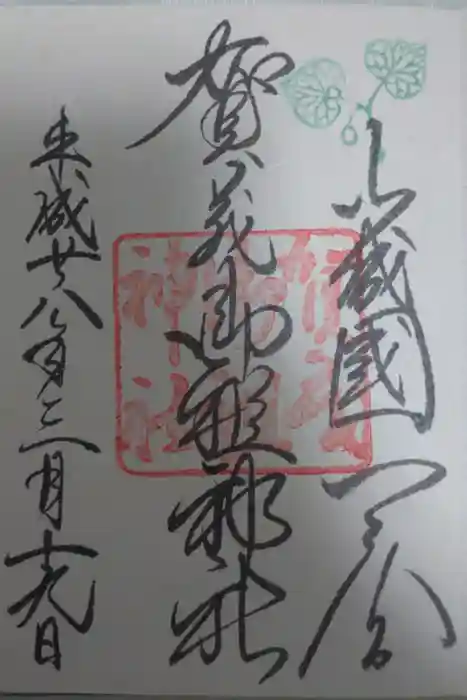 山城國一宮
賀茂御祖神社
平成廿八年三月十九日
神社